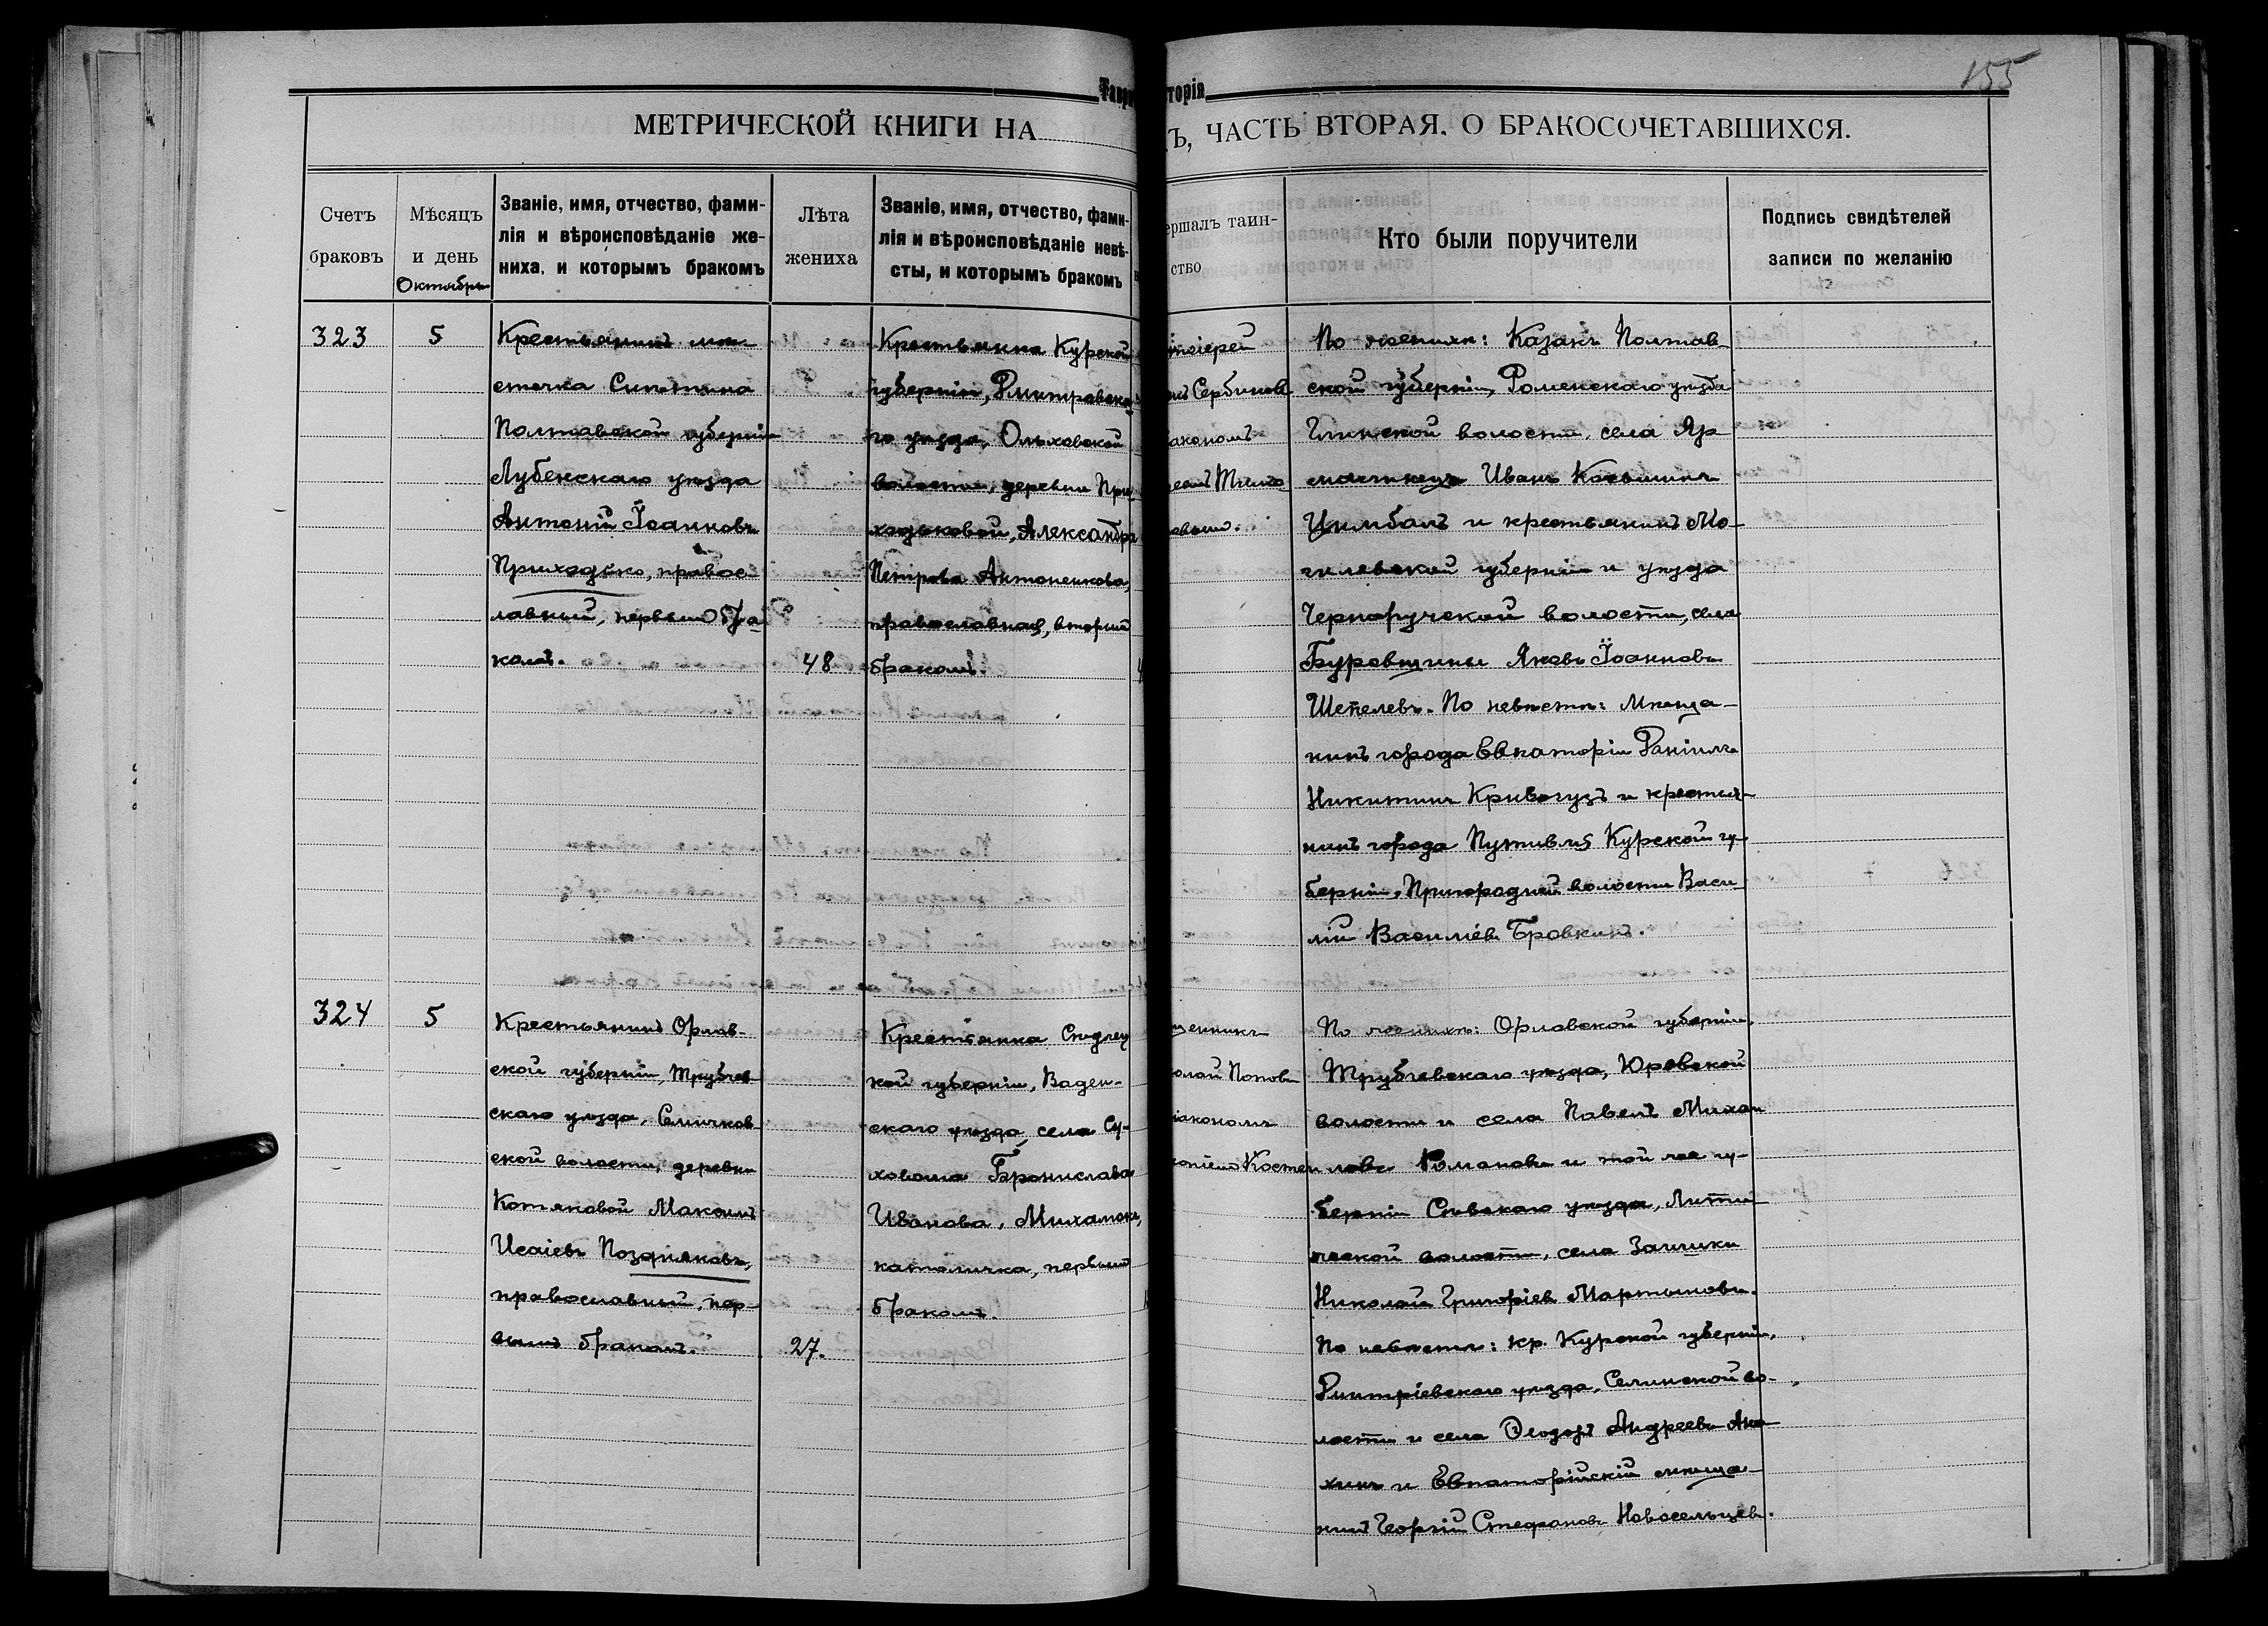 155
Тавр торія
МЕТРИЧЕСКОЙ КНИГИ НА Ъ, ЧАСТЬ ВТОРАЯ, О БРАКОСОЧЕТАВШИХСЯ.
Счетъ
браковъ
Мѣсяцъ
и день
Октябрь
Званіе, имя, отчество, фами-
лія и вѣроисповѣданіе же-
ниха, и которымъ бракомъ
Лѣта
жениха
Званіе, имя, отчество, фами-
лія и вѣроисповѣданіе невѣ-
сты, и которымъ бракомъ
ершалъ таин-
ство
Кто были поручители
Подпись свидѣтелей
записи по желанію
323
5
Крестьянинъ мѣ-
стечка
Полтавской губерніи
Лубенскаго уѣзда
Антоній Іоанновъ
Приходько, правос-
лавный, первымъ бра-
комъ.
48
Крестьянка Курской
губерніи, Дмитровска-
го уѣзда, Ольховской
волости, деревни При-
ходьковой, Александра
Петрова Антоненкова,
православная, вторымъ
бракомъ.
тоіерей
Сербиновъ
іакономъ
По женихѣ: Казакъ Полтав-
ской губерніи, Роменскаго уѣзда
Глинской волости, села Яр-
Иванъ Косьминъ
Цимбалъ и крестьянинъ Мо-
гилевской губерніи и уѣзда
Черноручской волости, села
Буровщины Яковъ Іоанновъ
Шепелевъ. По невѣстѣ: Мѣща-
нинъ города Евпаторіи Даніилъ
Никитинъ Кривогузъ и крестья-
нинъ города Путивля Курской гу-
берніи, Пригородней волости Васи-
лій Василіевъ Бровкинъ.
324
5
Крестьянинъ Орлов-
ской губерніи, Трубчев-
скаго уѣзда, Селичков-
ской волости, деревни
Котяковой Максимъ
Исаіевъ Поздняковъ,
православный, пер-
вымъ бракомъ.
27.
Крестьянка Сѣдлец-
кой губерніи, Ваден-
скаго уѣзда, села Су-
Бронислава
Иванова,
католичка, первымъ
бракомъ.
щенникъ
олай Поповъ
іакономъ
По женихѣ: Орловской губерніи,
Трубчевскаго уѣзда, Юровской
волости и села Павелъ Михаи-
ловъ Романовъ и той же гу-
берніи Сѣвскаго уѣзда,
волости, села
Николай Григоріевъ Мартыновъ.
По невѣстѣ: кр. Курской губерніи,
Дмитріевскаго уѣзда, Селинской во-
лости и села Ѳеодоръ Андреевъ Ано-
хинъ и Евпаторійскій мѣща-
нинъ Георгій Стефановъ Новосельцевъ.